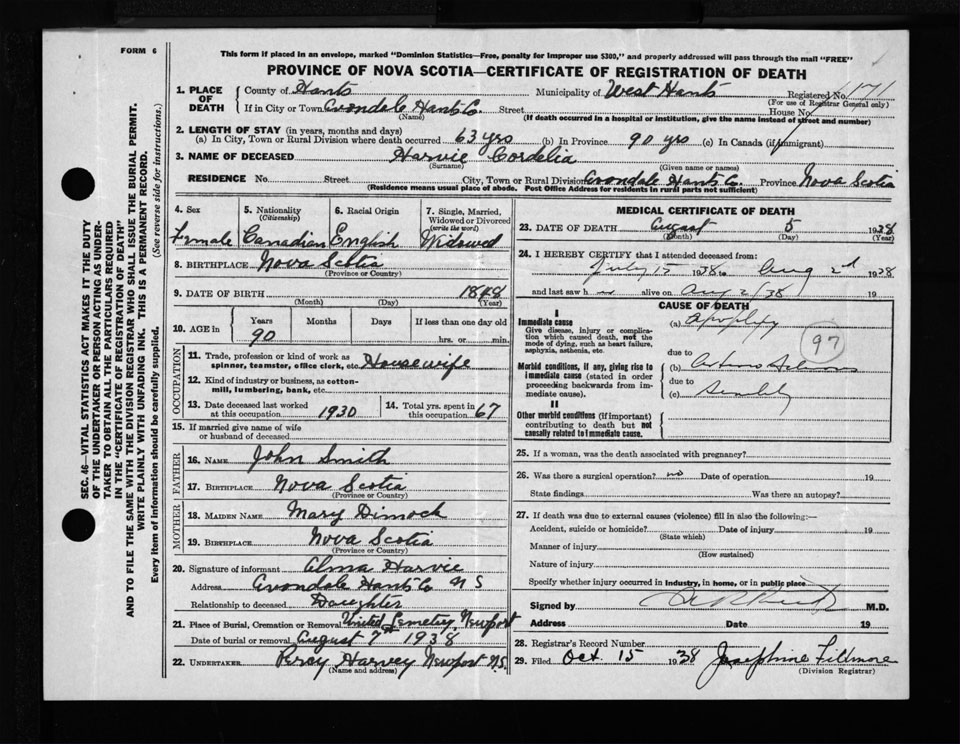 FORM 6
This form if placed in an envelope, marked "Dominion Statistics—Free, penalty for improper use $300," and properly addressed will pass through the mail "FREE"
PROVINCE OF NOVA SCOTIA—CERTIFICATE OF REGISTRATION OF DEATH
1. PLACE OF DEATH County of Hants Municipality of West Hants Registered No. 171
(For use of Registrar General only)
If in City or Town Avondale Hants Co. Street House No.
(Name) (If death occurred in a hospital or institution, give the name instead of street and number)
2. LENGTH OF STAY (in years, months and days)
(a) In City, Town or Rural Division where death occurred 63 yrs (b) In Province 90 yrs (c) In Canada (if immigrant)
3. NAME OF DECEASED Harvie Cordelia
(Surname) (Given name or names)
RESIDENCE No. Street City, Town or Rural Division Avondale Hants Co. Province Nova Scotia
(Residence means usual place of abode. Post Office Address for residents in rural parts not sufficient)
4. Sex 5. Nationality (Citizenship) 6. Racial Origin 7. Single, Married, Widowed or Divorced (write the word)
Female Canadian English Widowed
8. BIRTHPLACE Nova Scotia
(Province or Country)
9. DATE OF BIRTH 1848
(Month) (Day) (Year)
10. AGE in Years Months Days If less than one day old
90 hrs. or min.
OCCUPATION
11. Trade, profession or kind of work as spinner, teamster, office clerk, etc. Housewife
12. Kind of industry or business, as cotton-mill, lumbering, bank, etc.
13. Date deceased last worked at this occupation 1930 14. Total yrs. spent in this occupation 67
15. If married give name of wife or husband of deceased
FATHER
16. NAME John Smith
17. BIRTHPLACE Nova Scotia
(Province or Country)
MOTHER
18. MAIDEN NAME Mary Dimock
19. BIRTHPLACE Nova Scotia
(Province or Country)
20. Signature of informant Alma Harvie
Address Avondale Hants Co N S
Relationship to deceased Daughter
21. Place of Burial, Cremation or Removal United Cemetery, Newport
Date of burial or removal August 7th 1938
22. UNDERTAKER Percy Harvey Newport N.S.
(Name and address)
MEDICAL CERTIFICATE OF DEATH
23. DATE OF DEATH August 5 1938
(Month) (Day) (Year)
24. I HEREBY CERTIFY that I attended deceased from:
July 15 1938 to Aug 2nd 1938
and last saw h alive on Aug 2/38 19
CAUSE OF DEATH
I
Immediate cause
Give disease, injury or complication which caused death, not the mode of dying, such as heart failure, asphyxia, asthenia, etc.
(a) Apoplexy
97
due to
Morbid conditions, if any, giving rise to immediate cause (stated in order proceeding backwards from immediate cause).
(b) Arterio Sclerosis
due to
(c) Senility
II
Other morbid conditions (if important) contributing to death but not causally related to immediate cause.
25. If a woman, was the death associated with pregnancy?
26. Was there a surgical operation? no Date of operation 19
State findings Was there an autopsy?
27. If death was due to external causes (violence) fill in also the following:—
Accident, suicide or homicide? Date of injury 19
(State which)
Manner of injury
(How sustained)
Nature of injury
Specify whether injury occurred in industry, in home, or in public place
Signed by M.D.
Address Date 19
28. Registrar's Record Number
29. Filed Oct. 15 1938 Josephine Fillmore
(Division Registrar)
SEC. 46—VITAL STATISTICS ACT MAKES IT THE DUTY
OF THE UNDERTAKER OR PERSON ACTING AS UNDER-
TAKER TO OBTAIN ALL THE PARTICULARS REQUIRED
IN THE "CERTIFICATE OF REGISTRATION OF DEATH"
AND TO FILE THE SAME WITH THE DIVISION REGISTRAR WHO SHALL ISSUE THE BURIAL PERMIT.
WRITE PLAINLY WITH UNFADING INK. THIS IS A PERMANENT RECORD.
Every item of information should be carefully supplied. (See reverse side for instructions.)